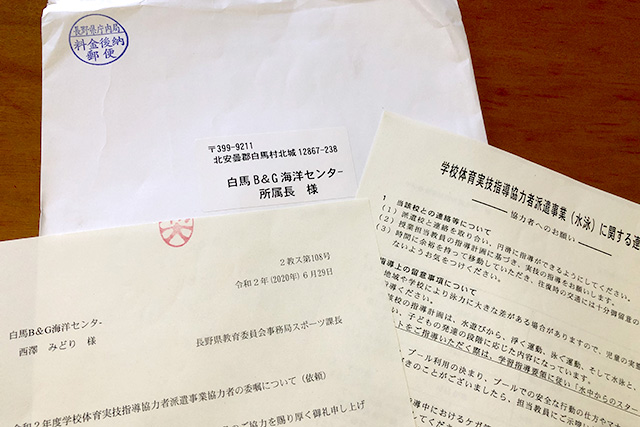 長野県庁内局
料金後納
郵便
〒399-9211
北安曇郡白馬村北城 12867-238
白馬 B＆G 海洋センター
所属長 様
2教ス第108号
令和2年(2020年) 6月29日
白馬B&G海洋センター
西澤 みどり 様
長野県教育委員会事務局スポーツ課長
令和2年度学校体育実技指導協力者派遣事業協力者の委嘱について（依頼）
のご協力を賜り厚く御礼申し上げ
学校体育実技指導協力者派遣事業（水泳）に関する連
協力者へのお願い
1 当該校との連絡等について
(1) 派遣校と連絡を取り合い、円滑に指導ができるようにしてください。
(2) 授業担当教員の指導計画に基づき、実技の指導をお願いします。
(3) 時間に余裕を持って移動していただき、往復時の交通には十分御留意の
ないようお気をつけください。
指導上の留意事項について
地域や学校により泳力に大きな差がある場合がありますので、児童の実態
導ください。
該校の指導計画は、水遊びから、浮く運動、泳ぐ運動、そして水泳と、
い、子どもの発達の段階に応じた内容になっています。
ートをご指導いただく際は、学習指導要領に従い「水中からのスター
プール利用の決まり、プールでの安全な行動の仕方やマナ
きのことがございましたら、担当教員にご示唆い
導中におけるケガ